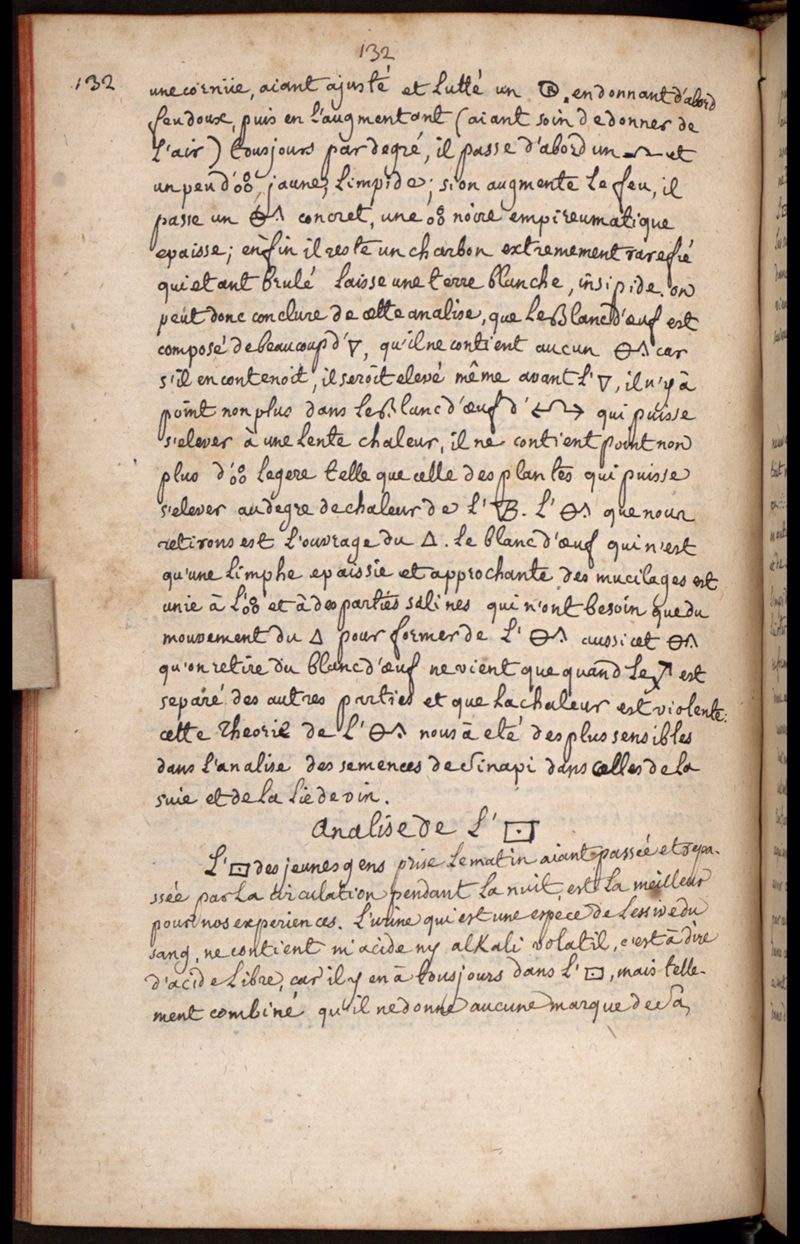 132
132
une cornüe, aiant ajusté et lutté un en donnant d'abord
feu doux, puis en l'augmentant (aiant soin de donner de
l'air) tousjours par degré, il passe d'abord un et
un peu d' jaune, limpide; si on augmente le feu, il
passe un concret, une noire empireumatique
epaisse; enfin il reste un charbon extremement rarefié
qui etant brulé laisse une terre blanche, insipide. on
peut donc conclure de cette analise, que le Blanc d'œuf est
composé de beaucoup d'🜄, qu'il ne contient aucun car
s'il en contenoit, il seroit elevé même avant l'🜄, il n'y à
point non plus dans le Blanc d'œuf d' qui puisse
s'elever à une lente chaleur, il ne contient point non
plus d' legere telle que celle des plantes qui puisse
s'elever au degre de chaleur de l' . L' que nous
retirons est l'ouvrage du 🜂. Le blanc d'œuf qui n'est
qu'une limphe epaissie et approchante des mucilages est
unie à l' et à des parties salines qui n'ont besoin que du
mouvement du 🜂 pour former de l' aussi cet
qu'on retire du blanc d'œuf ne vient que quand le est
separé des autres parties et que la chaleur est violente.
cette Theorie de l' nous à eté des plus sensibles
dans l'analise des semences de Sinapi dans celles de la
suie et de la lie de vin.
Analise de L'⊡
L'⊡ des jeunes gens prise le matin aiant passée et repa-
ssée par la circulation pendant la nuit est la meilleur
pour nos experiences. L'urine qui est une espece de lessive du
sang, ne contient ni acide ny alKali volatil, c'est à dire
d'acide libre, car il y en à tousjours dans l'⊡, mais telle-
ment combiné qu'il ne donne aucune marque de sa